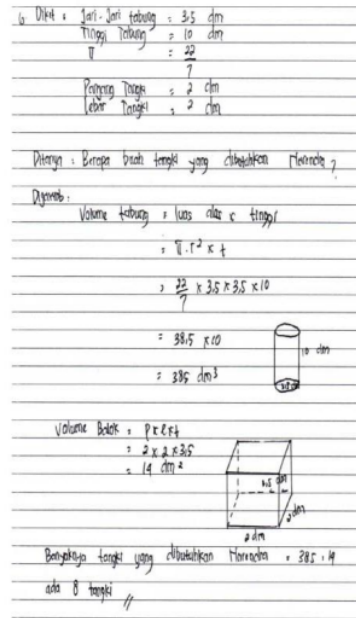 6. Dikt : Jari-Jari tabung = 3.5 dm
Tinggi Tabung = 10 dm
π = 22/7
Panjang Tangki = 2 dm
Lebar Tangki = 2 dm
Ditanya : Berapa buah tangki yang dibutuhkan Narendra ?
Dijawab :
Volume tabung = luas alas x tinggi
= π.r² x t
= 22/7 x 3.5 x 3.5 x 10
= 38,5 x 10
= 385 dm³
10 dm
Volume Balok = p x l x t
= 2 x 2 x 3,5
= 14 dm²
3,5 dm
2 dm
2 dm
Banyaknya tangki yang dibutuhkan Narendra = 385 : 14
ada 8 tangki //